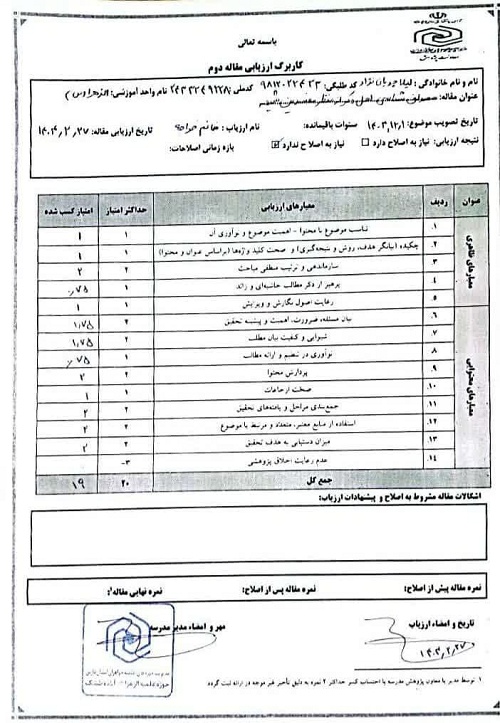 باسمه تعالی
کاربرگ ارزیابی مقاله دوم
نام و نام خانوادگی: کد طلبگی: کدملی: نام واحد آموزشی:
عنوان مقاله:
تاریخ تصویب موضوع: سنوات باقیمانده: نام ارزیاب: تاریخ ارزیابی مقاله: ۱۴۰۴/۲/۲۷
نتیجه ارزیابی: نیاز به اصلاح دارد ☐ نیاز به اصلاح ندارد ☑ بازه زمانی اصلاحات:
عنوان ردیف معیارهای ارزیابی حداکثر امتیاز امتیاز کسب شده
معیارهای ظاهری
۱. تناسب موضوع با محتوا - اهمیت موضوع و نوآوری آن ۱ ۱
۲. چکیده (بیانگر هدف، روش و نتیجه‌گیری) و صحت کلید واژه‌ها (براساس عنوان و محتوا) ۱ ۱
۳. سازماندهی و ترتیب منطقی مباحث ۲ ۲
۴. پرهیز از ذکر مطالب حاشیه‌ای و زائد ۱ ۰/۷۵
۵. رعایت اصول نگارش و ویرایش ۱ ۱
معیارهای محتوایی
۶. بیان مسئله، ضرورت، اهمیت و پیشینه تحقیق ۲ ۱/۷۵
۷. شیوایی و کیفیت بیان مطلب ۲ ۱/۷۵
۸. نوآوری در تنظیم و ارائه مطالب ۱ ۰/۷۵
۹. پردازش محتوا ۲ ۲
۱۰. صحت ارجاعات ۱ ۱
۱۱. جمع‌بندی مراحل و یافته‌های تحقیق ۲ ۲
۱۲. استفاده از منابع معتبر، متعدد و مرتبط با موضوع ۲ ۲
۱۳. میزان دستیابی به هدف تحقیق ۲ ۲
۱۴. عدم رعایت اخلاق پژوهشی ۳-
جمع کل ۲۰ ۱۹
اشکالات مقاله مشروط به اصلاح و پیشنهادات ارزیاب:
نمره مقاله پیش از اصلاح: نمره مقاله پس از اصلاح: نمره نهایی مقاله¹:
تاریخ و امضاء ارزیاب مهر و امضاء مدیر مدرسه
۱۴۰۴/۲/۲۷
۱ توسط مدیر یا معاون پژوهش مدرسه با احتساب کسر حداکثر ۲ نمره به دلیل تأخیر غیر موجه در ارائه ثبت گردد